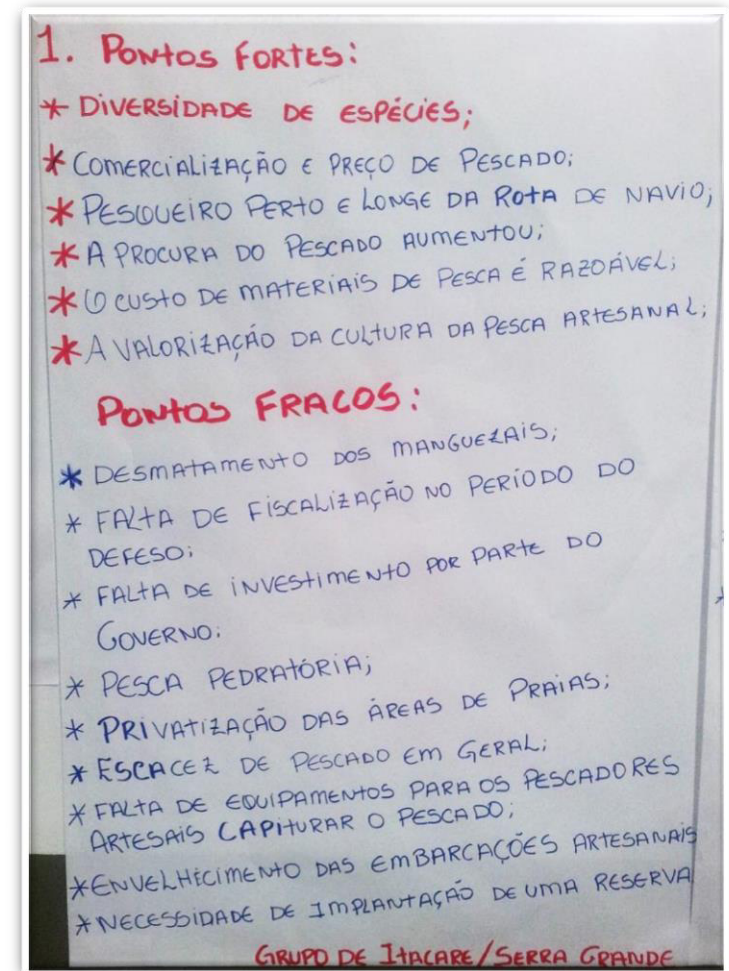 1. PONTOS FORTES:
* DIVERSIDADE DE ESPÉCIES;
* COMERCIALIZAÇÃO E PREÇO DE PESCADO;
* PESQUEIRO PERTO E LONGE DA ROTA DE NAVIO;
* A PROCURA DO PESCADO AUMENTOU;
* O CUSTO DE MATERIAIS DE PESCA É RAZOÁVEL;
* A VALORIZAÇÃO DA CULTURA DA PESCA ARTESANAL;
PONTOS FRACOS:
* DESMATAMENTO DOS MANGUEZAIS;
* FALTA DE FISCALIZAÇÃO NO PERÍODO DO
DEFESO;
* FALTA DE INVESTIMENTO POR PARTE DO
GOVERNO;
* PESCA PEDRATÓRIA;
* PRIVATIZAÇÃO DAS ÁREAS DE PRAIAS;
* ESCACEZ DE PESCADO EM GERAL;
* FALTA DE EQUIPAMENTOS PARA OS PESCADORES
ARTESAIS CAPITURAR O PESCADO;
* ENVELHICIMENTO DAS EMBARCAÇÕES ARTESANAIS
* NECESSIDADE DE IMPLANTAÇÃO DE UMA RESERVA
GRUPO DE ITACARE/SERRA GRANDE